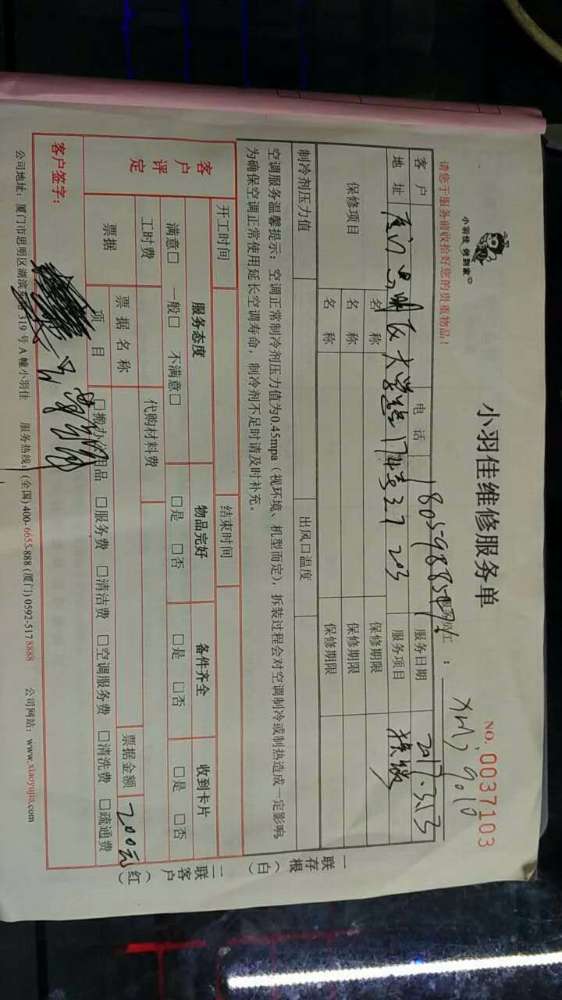 小羽佳 佳到家
小羽佳维修服务单
NO.0037103
请您于服务前收拾好您的贵重物品!
工: XMJ9010
客户 电话 服务日期 2017.3.13
地址 服务项目
保修项目 名称 保修期限
名称 保修期限
名称 保修期限
制冷剂压力值 出风口温度
空调服务温馨提示: 空调正常制冷剂压力值为0.45mpa(视环境、机型而定), 拆装过程会对空调制冷或制热造成一定影响,
为确保空调正常使用延长空调寿命, 制冷剂不足时请及时补充。
开工时间 结束时间
客户评定 服务态度 物品完好 备件齐全 收到卡片
满意□ 一般□ 不满意□ □是 □否 □是 □否 □是 □否
工时费 代购材料费
票据 票据名称 票据金额 200元
项目 □搬办公用品 □服务费 □清洁费 □空调服务费 □清洗费 □疏通费
客户签字:
公司地址: 厦门市思明区湖滨 319号A幢小羽佳 服务热线: (全国)400-6655-888 (厦门)0592-5178888 公司网站: www.xiaoyujia.com
一联存根(白)
二联客户(红)